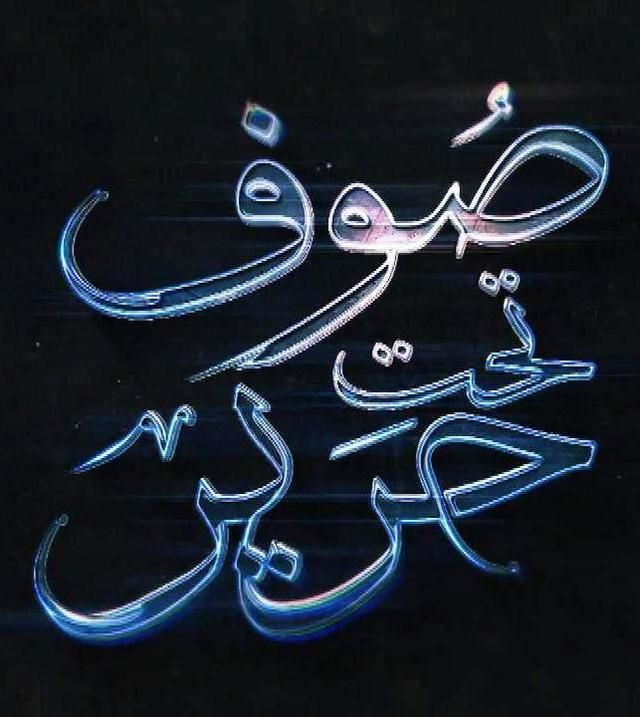 صُوف
تحت
حَرير